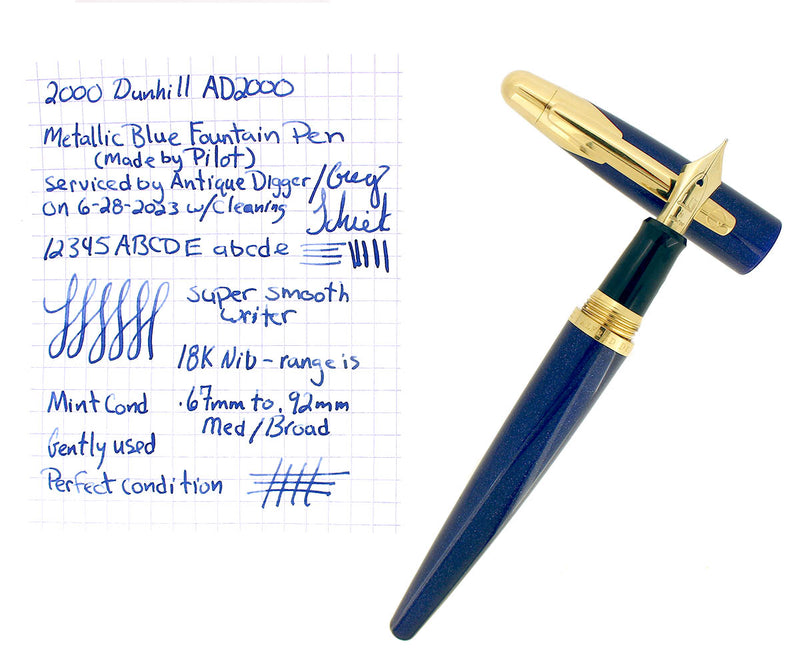 2000 Dunhill AD2000
Metallic Blue Fountain Pen
(Made by Pilot)
serviced by Antique Digger/Greg
on 6-28-2023 w/Cleaning
12345 ABCDE abcde
super smooth
writer
18K Nib - range is
Mint Cond .67mm to .92mm
Med/Broad
Gently used
Perfect condition